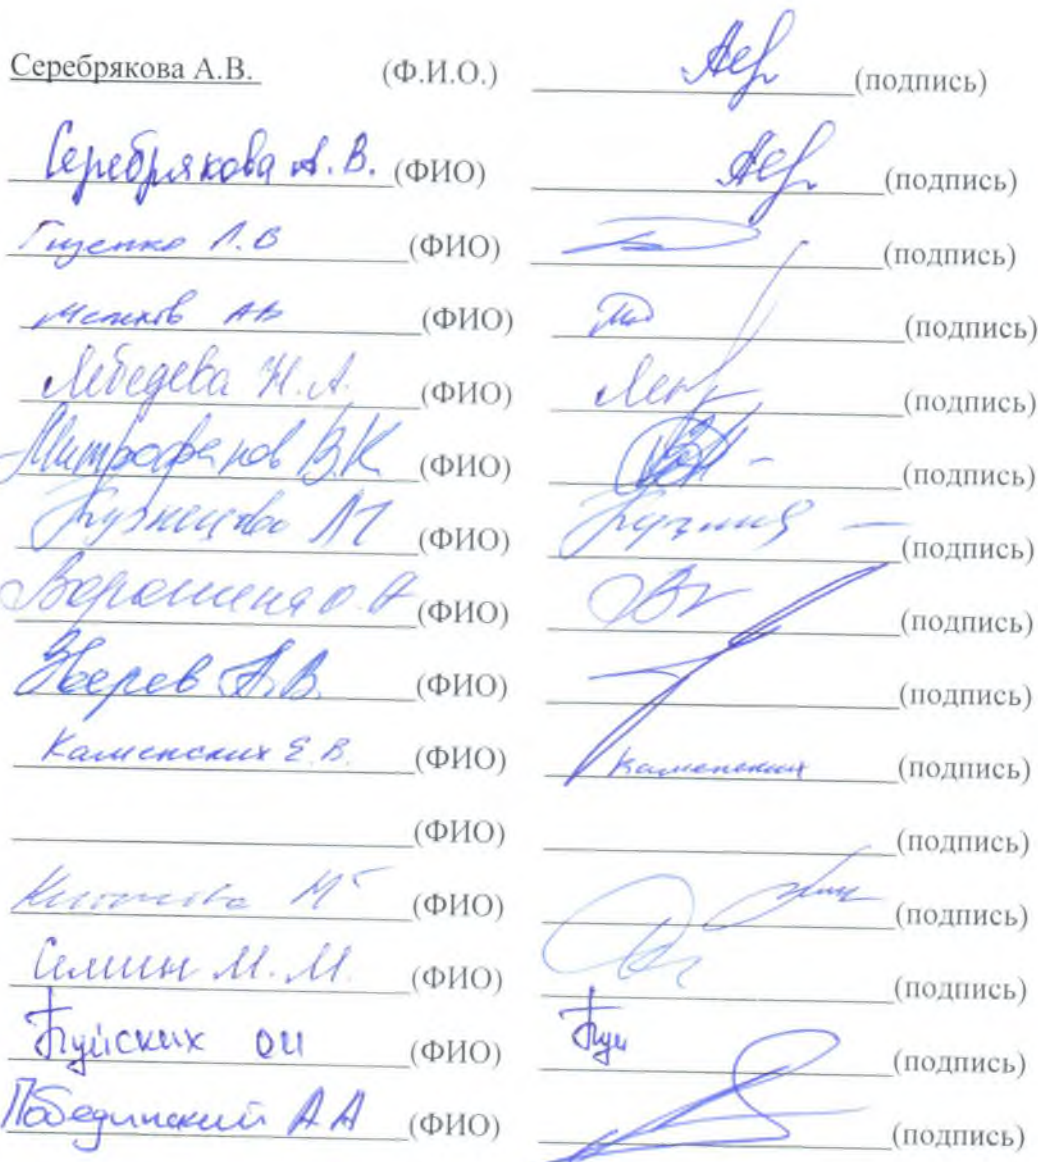 Серебрякова А.В. (Ф.И.О.) (подпись)
Серебрякова А. В. (ФИО) (подпись)
Гиценко Л.В (ФИО) (подпись)
АВ (ФИО) (подпись)
Лебедева Н.А. (ФИО) (подпись)
Митрофанов В.К (ФИО) (подпись)
Кузнецова (ФИО) (подпись)
Ворошина О.А (ФИО) (подпись)
Зверев А.В. (ФИО) (подпись)
Каменских Е.В. (ФИО) Каменских (подпись)
(ФИО) (подпись)
(ФИО) (подпись)
Семин М.М. (ФИО) (подпись)
Куйских ОИ (ФИО) Куй (подпись)
Побединский АА (ФИО) (подпись)